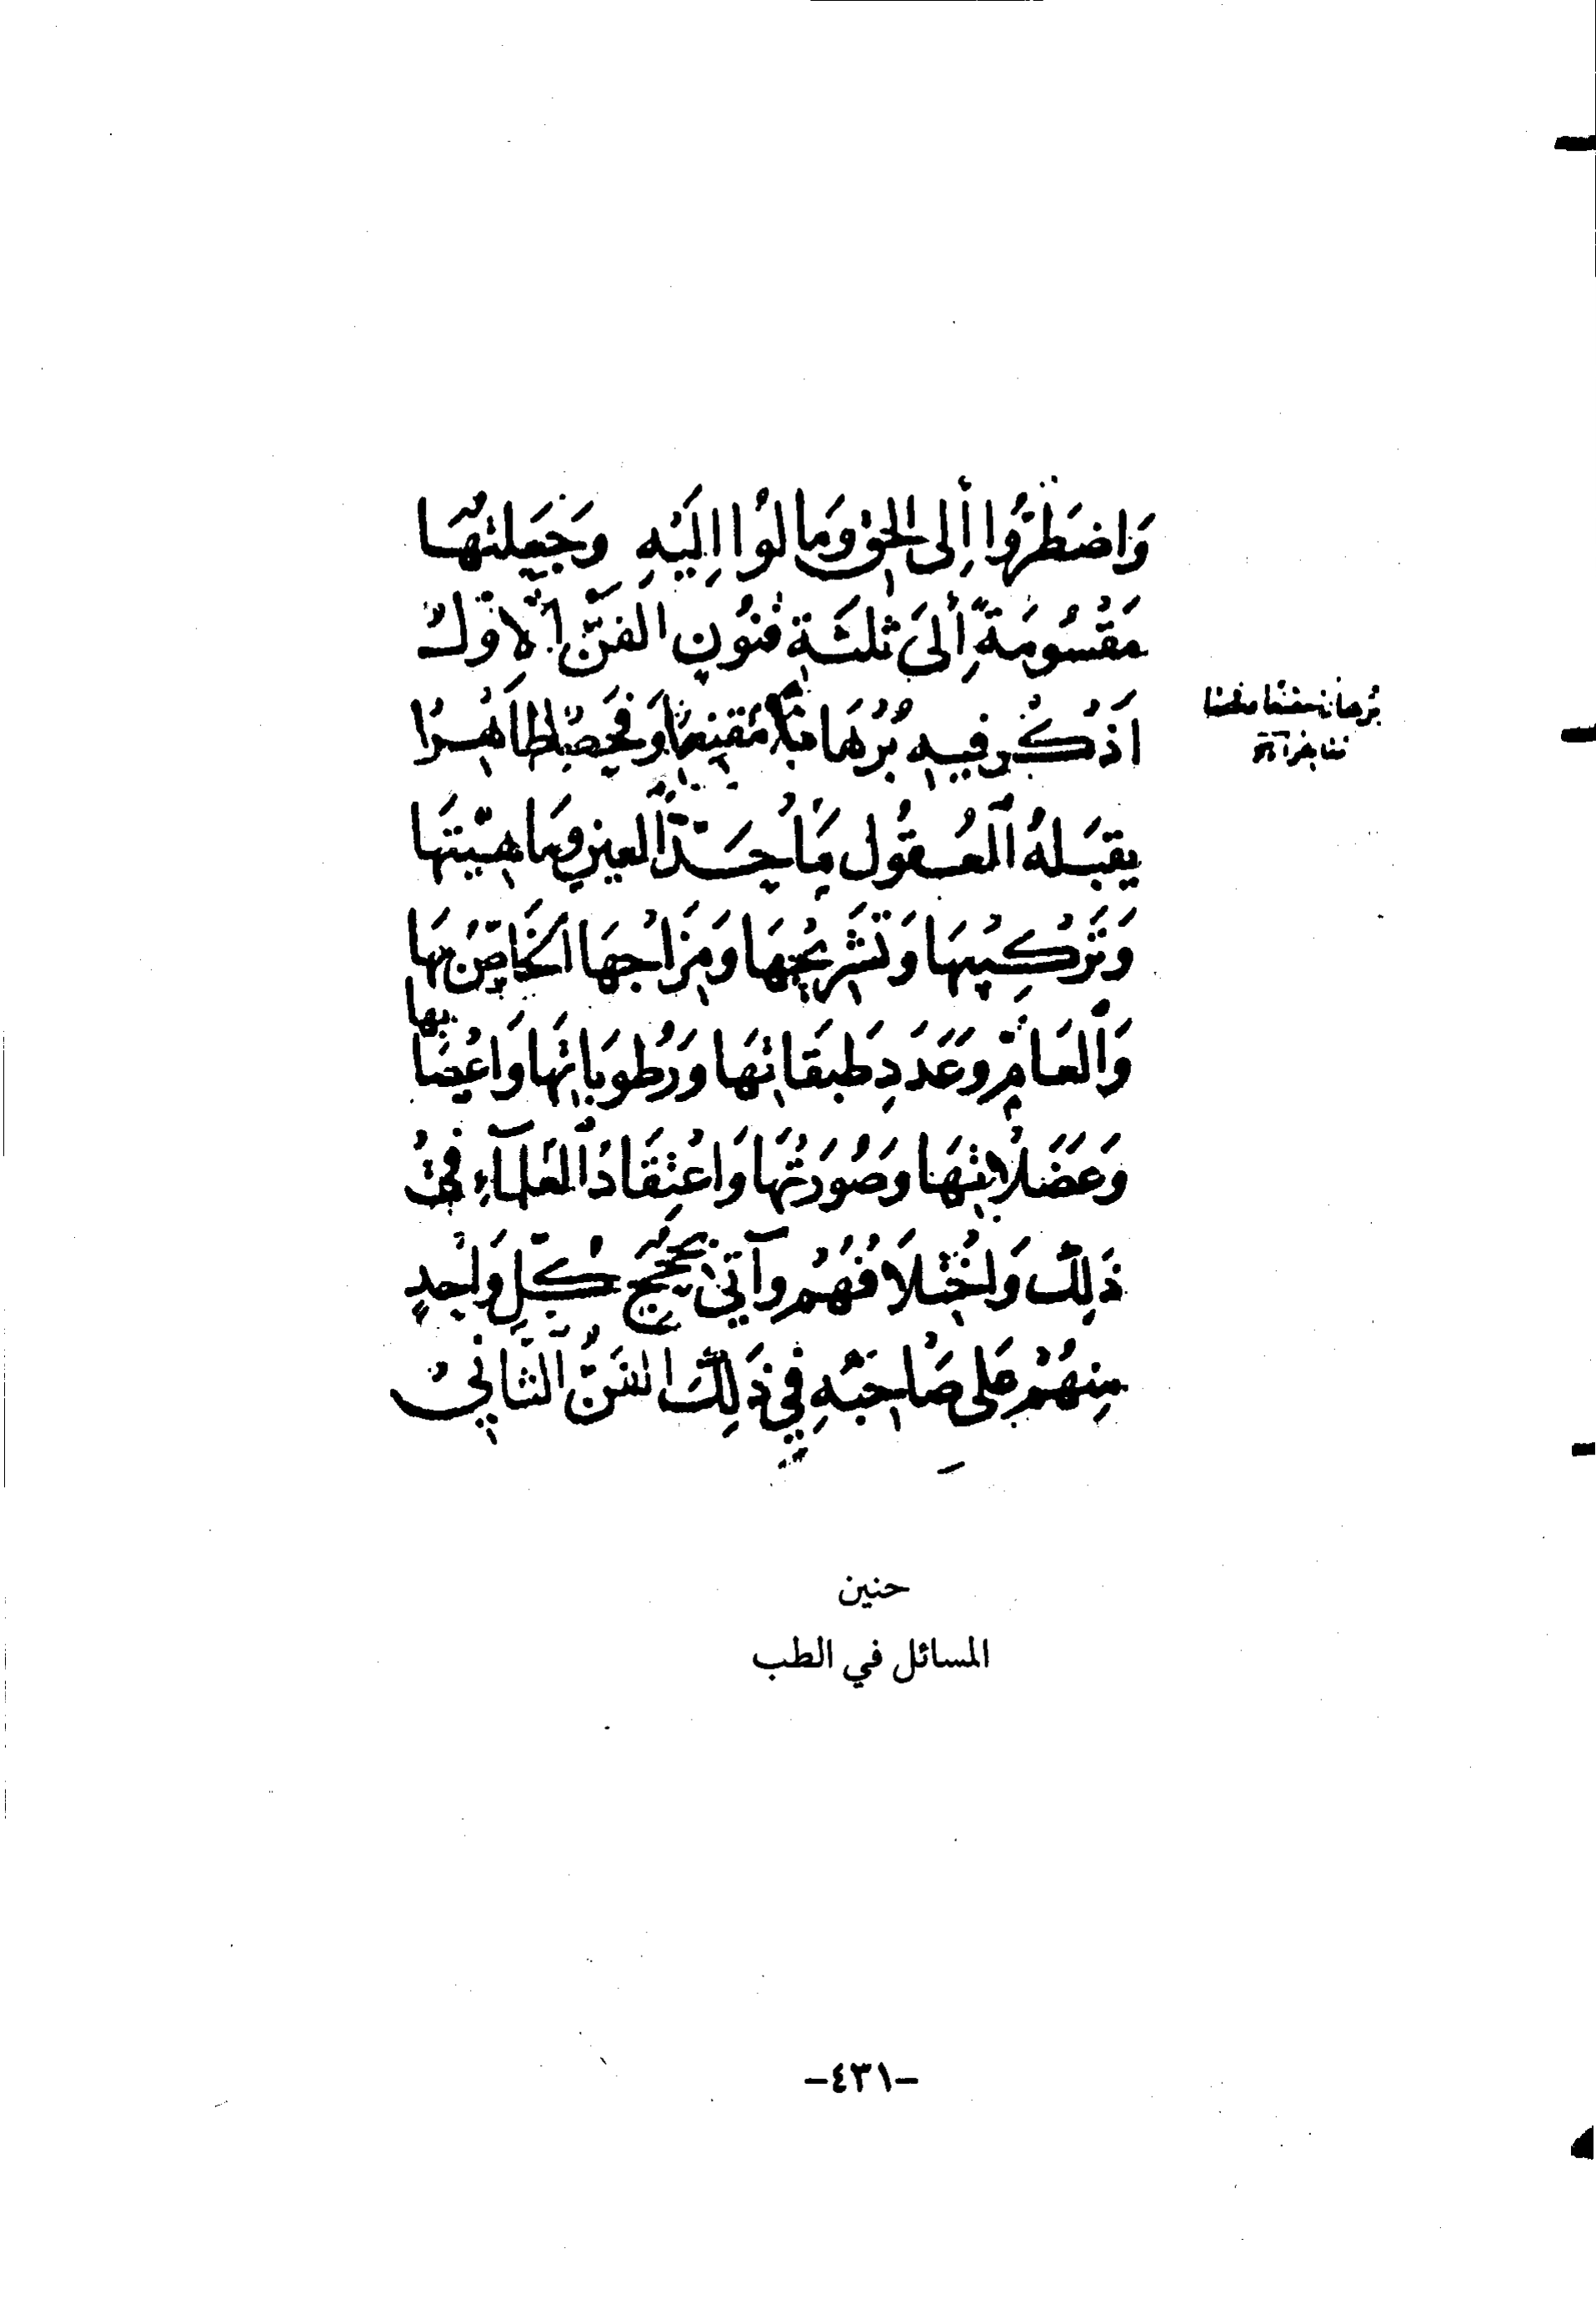 وَاضطَرُّوا إِلى الحق وَمَالُوا اِلَيْهِ وَجَعَلتُهَا
مَقْسُومَةً إِلىَ ثلثَةِ فنُونٍ الفَنّ الاوّلُ
اَذْكُر فيهِ بُرْهَانًا مقنعًا ظَاهِرًا
يقبَلهُ العُقُول مَا حَدّ العين وما هيّتهَا
وَتَرْكيبُهَا وَتَشْريحُهَا وَمِزَاجُهَا الخَاصّ بهَا
وَالعَامّ وَعَدَدِ طَبقَاتهَا وَرُطُوبَاتهَا وَاعْصَا
بها
وَعَضَلَاتهَا وَصُورَتُهَا وَاعْتِقَادُ العلمَآءِ فيْ
ذَلِكَ وَاخْتلَافُهُمْ وآتي بحُجَج كلّ وَاحدٍ
مِنهُمْ عَلى صَاحِبهِ في ذَلِكَ الفَنُّ الثَّانيْ
بُرهانًا مقنعًا
حنين
المسائل في الطب
-٤٣١-